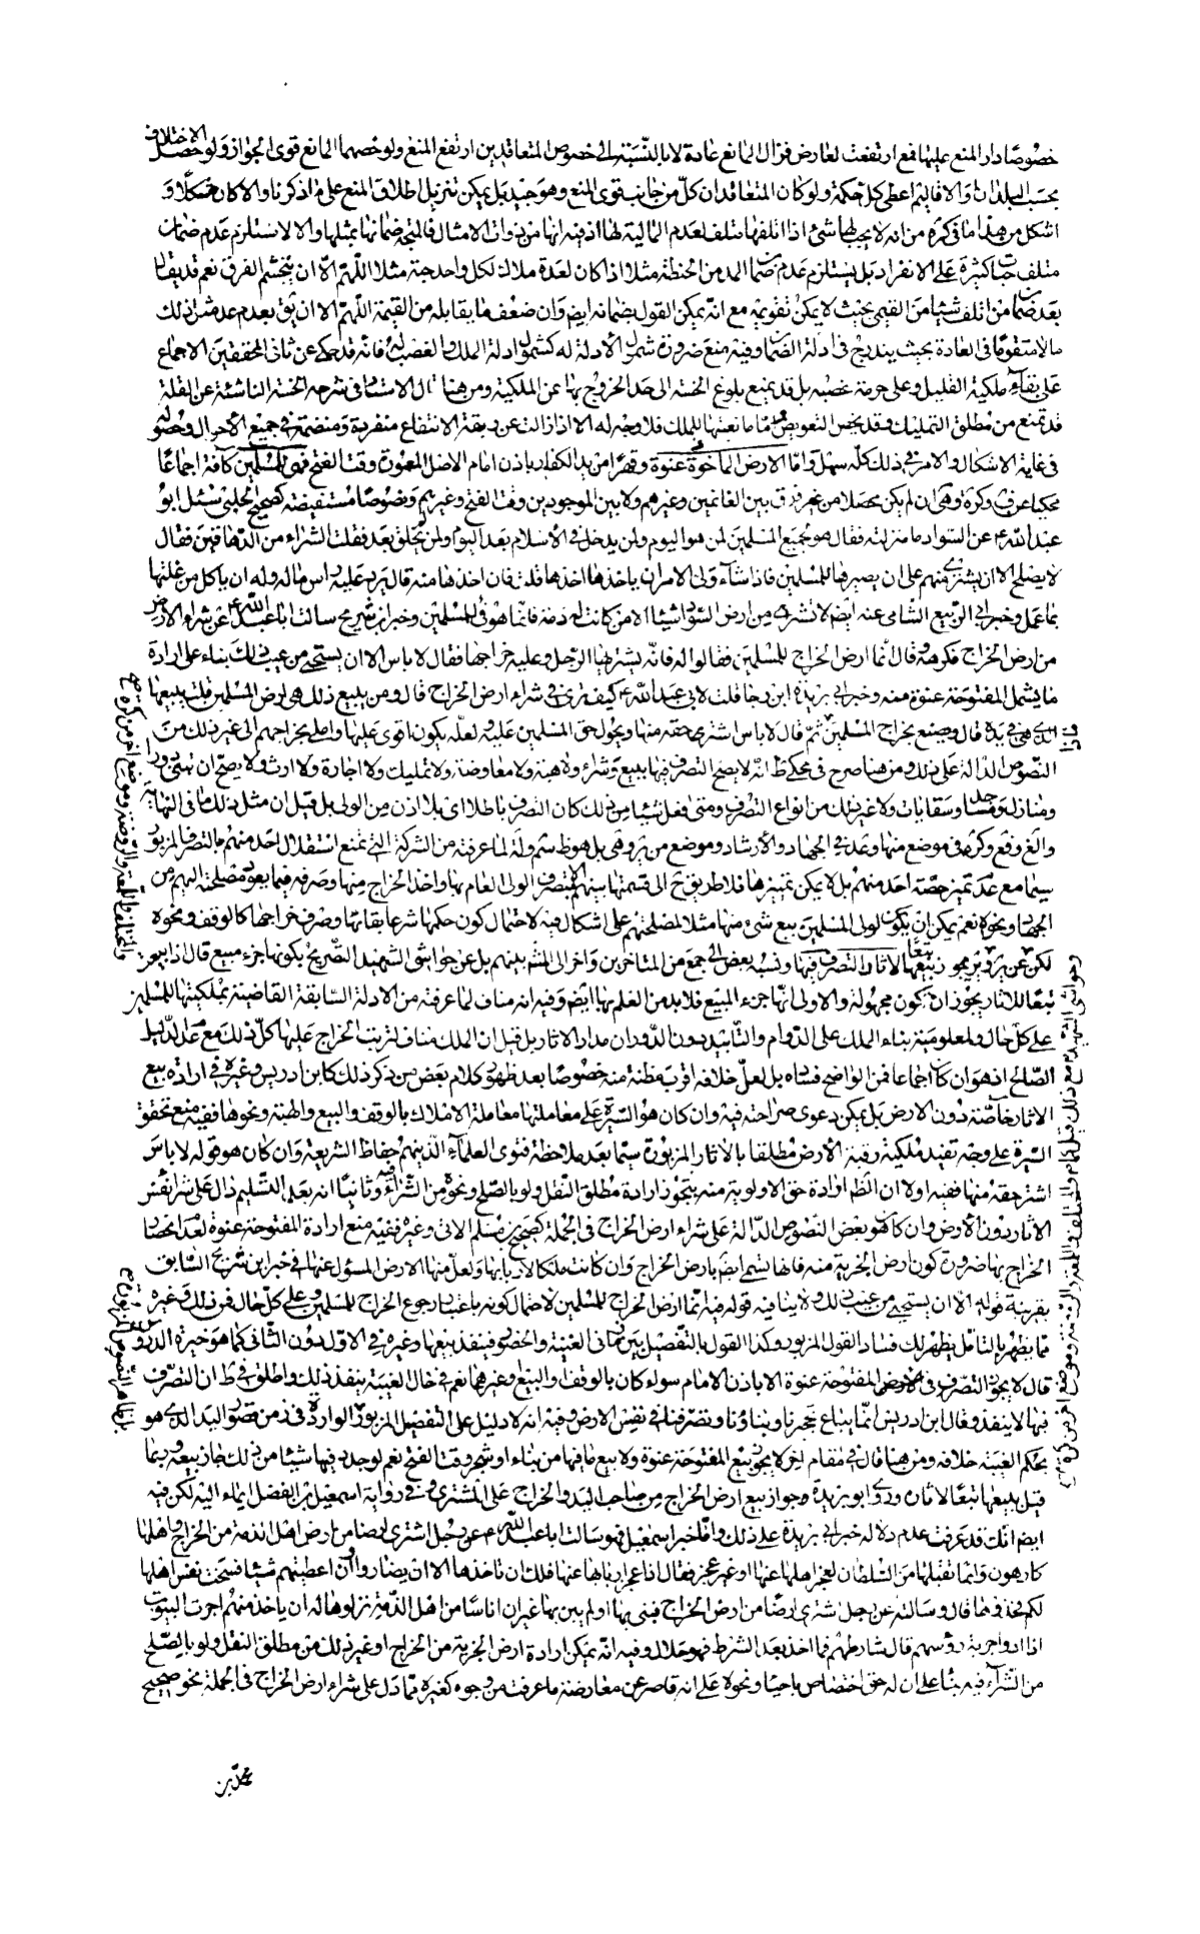 خصوصا دار المنع عليها فمع ارتفعت لعارض فزال المانع عادة لا بالنسبة الى خصوص المتعاقدين ارتفع المنع ولو خصهما المانع قوى الجواز ولو حصل الاختلاف
بحسب البلدان والاقاليم اعطى كل حكمه ولو كان المتعاقدان كل من جانب قوى المنع وهو جيد بل يمكن تنزيل اطلاق المنع على ما ذكرنا والا كان مشكلا و
اشكل من هذا ما في كره من انه لا يجب لها شئ اذا اتلفها متلف لعدم المالية لها اذ فيه انها من ذوات الامثال فالمتجه ضمانها بمثلها والا لاستلزم عدم ضمان
متلف حبات كثيرة على الانفراد بل يستلزم عدم ضمان المد من الحنطة مثلا اذا كان لعدة ملاك لكل واحد حبة مثلا اللهم الا ان يتجشم الفرق نعم قد يقال
بعد ضمان من اتلف شيئا من القيمي بحيث لا يمكن تقويمه مع انه يمكن القول بضمانه ايضا وان ضعف ما يقابله من القيمة اللهم الا ان يق بعدم عد مثل ذلك
مالا متقوما في العادة بحيث يندرج في ادلة الضمان وفيه منع ضرورة شمول الادلة له كشمول ادلة الملك والغصب له فانه قد حكي عن ثاني المحققين الاجماع
على بقاء ملكية القليل وعلى حرمة غصبه بل قد يمنع بلوغ الخسة الى حد الخروج بها عن الملكية ومن هنا قال الاستاد في شرحه الخسة الناشئة عن القلة
قد تمنع من مطلق التمليك وقد يخص التعويض واما مانعيتها للملك فلا وجه له الا اذا زالت عن ربقة الانتفاع منفردة ومنضمة في جميع الأحوال وحصوله
في غاية الاشكال والامر في ذلك كله سهل واما الارض المأخوذة عنوة وقهرا من يد الكفار باذن امام الاصل المعمورة وقت الفتح فهي للمسلمين كافة اجماعا
محكيا عن ف وكرة وهى ان لم يكن محصلا من غير فرق بين الغانمين وغيرهم ولا بين الموجودين وقت الفتح وغيرهم ونصوصا مستفيضة كصحيح الحلبي سئل ابو
عبد الله ع عن السواد ما منزلته فقال هو لجميع المسلمين لمن هو اليوم ولمن يدخل في الاسلام بعد اليوم ولمن لم يخلق بعد فقلت الشراء من الدهاقين فقال
لا يصلح الا ان يشترى منهم على ان يصيرها للمسلمين فاذا شاء ولى الامر ان ياخذها اخذها قلت فان اخذها منه قال يرد عليه راس ماله وله ان ياكل من غلتها
بما عمل وخبر ابي الربيع الشامى عنه ايضا لا تشتر من ارض السواد شيئا الا من كانت له ذمة فانما هو فئ للمسلمين وخبر ابن شريح سالت ابا عبد الله ع عن شراء الارض
من ارض الخراج فكرهه وقال انما ارض الخراج للمسلمين فقالوا له فانه يشتريها الرجل وعليه خراجها فقال لا باس الا ان يستحيي من عيب ذلك بناء على ارادة
ما يشمل المفتوحة عنوة منه وخبر ابي بردة ابن رجا قلت لابي عبد الله ع كيف ترى في شراء ارض الخراج قال ومن يبيع ذلك هي ارض المسلمين قلت يبيعها
الذي هى في يده قال ويصنع بخراج المسلمين ما ذا ثم قال لا باس اشترى حقه منها ويحول حق المسلمين عليه ولعله يكون اقوى عليها واملى بخراجهم الى غير ذلك من
النصوص الدالة على ذلك ومن هنا صرح في محكي ط انه لا يصح التصرف فيها ببيع وشراء ولا هبة ولا معاوضة ولا تمليك ولا اجارة ولا ارث ولا يصح ان تبنى دورا
ومنازل ومساجد وسقايات ولا غير ذلك من انواع التصرف ومتى فعل شيئا من ذلك كان التصرف باطلا اى بلا اذن من الولى بل قيل ان مثل ذلك ما في النهاية
والغ وفع وكره في موضع منها وعد في الجهاد والارشاد وموضع من س وهى بل هو ظ
سيما مع عدم تميز حصة احد منهم بل لا يمكن تميزها فلا طريق ح الى قسمتها بينهم الا بتصرف الولى العام بها واخذ الخراج منها وصرفه فيما يعود مصلحته اليهم من
الجهاد ونحوه نعم يمكن ان يكون لولى المسلمين بيع شئ منها مثلا لمصلحتهم على اشكال فيه لاحتمال كون حكمها شرعا بقائها وصرف خراجها كالوقف ونحوه
لكن عن س وير يجوز بيعها تبعا لاثار التصرف فيها ونسبه بعض الى جمع من المتاخرين واخر الى المشه بينهم بل عن حواشى الشهيد التصريح بكونها جزء مبيع قال اذا بيعت
تبعا للاثار يجوز ان تكون مجهولة والاولى انها جزء المبيع فلابد من العلم بها ايضا وفيه انه مناف لما عرفته من الادلة السابقة القاضية بملكيتها للمسلمين
على كل حال ولمعلومية بناء الملك على الدوام والتأبيد دون الدوران مدار الاثار بل قيل ان الملك مناف لترتب الخراج عليها كل ذلك مع عدم الدليل
الصالح اذ هو ان كان اجماعا فمن الواضح فساده بل لعل خلافه اقرب مظنة منه خصوصا بعد ظهور كلام بعض من ذكر ذلك كابن ادريس وغيره في ارادة بيع
الاثار خاصة دون الارض بل يمكن دعوى صراحته فيه وان كان هو السيرة على معاملتها معاملة الاملاك بالوقف والبيع والهبة ونحوها ففيه منع تحقق
السيرة على وجه تفيد ملكية رقبة الأرض مطلقا بالاثار المزبورة سيما بعد ملاحظة فتوى العلماء الذين هم حفاظ الشريعة وان كان هو قوله لا باس
اشتر حقه منها ففيه اولا ان الظه ارادة حق الاولوية منه بتجوز ارادة مطلق النقل ولو بالصلح ونحوه من الشراء فيه وثانيا انه بعد التسليم دال على شراء نفس
الاثار دون الأرض وان كان هو بعض النصوص الدالة على شراء ارض الخراج في الجملة كصحيح بن مسلم الاتى وغيره ففيه منع ارادة المفتوحة عنوة لعدم انحصار
الخراج بها ضرورة كون ارض الجزية منه فانها تسمى ايضا بارض الخراج وان كانت ملكا لاربابها ولعل منها الارض المسئول عنها في خبر ابن شريح السابق
بقرينة قوله الا ان يستحيي من عيب ذلك ولا ينافيه قوله فيه انما ارض الخراج للمسلمين لاحتمال كونه باعتبار رجوع الخراج للمسلمين وعلى كل حال فمن ذلك وغيره
مما يظهر بالتامل يظهر لك فساد القول المزبور وكذا القول بالتفصيل بين زمانى الغيبة والحضور فينفذ بيعها وغيره في الاول دون الثانى كما هو خيرة الدروس
قال لا يجوز التصرف في الارض المفتوحة عنوة الا باذن الامام سواء كان بالوقف او البيع وغيرهما نعم في حال الغيبة ينفذ ذلك واطلق في ط ان التصرف
فيها لا ينفذ وقال ابن ادريس انما يباع تحجيرنا وبناؤنا وتصرفنا لا نفس الارض وفيه انه لا دليل على التفصيل المزبور والواردة في زمن قصور اليد الذي هو
بحكم الغيبة خلافه ومن هنا قال في مقام اخر لا يجوز بيع المفتوحة عنوة ولا بيع ما فيها من بناء او شجر وقت الفتح نعم لو جدد فيها شيئا من ذلك جاز بيعه وربما
قيل ببيعها تبعا لاثاره وروى ابو بردة جواز بيع ارض الخراج من صاحب اليد والخراج على المشترى وفي رواية اسمعيل بن الفضل ايماء اليه لكن فيه
ايضا انك قد عرفت عدم دلالة خبر ابي بردة على ذلك واما خبر اسمعيل فهو سالت ابا عبد الله ع عن رجل اشترى ارضا من ارض اهل الذمة من الخراج واهلها
كارهون وانما تقبلها من السلطان لعجز اهلها عنها او غير عجز فقال اذا عجز اربابها عنها فلك ان تاخذها الا ان يضاروا وان اعطيتهم شيئا فسخت نفس اهلها
لكم فخذوها قال وسالته عن رجل اشترى ارضا من ارض الخراج فبنى بها او لم يبن بها غير ان اناسا من اهل الذمة نزلوها له ان ياخذ منهم اجرة البيوت
اذا ادوا جزية رؤسهم قال شارطهم فما اخذ بعد الشرط فهو حلال وفيه انه يمكن ارادة ارض الجزية من الخراج او غير ذلك من مطلق النقل ولو بالصلح
من الشراء فيه بناء على ان له حق اختصاص باحياء ونحوه على انه قاصر عن معارضة ما عرفت من وجوه كغيره مما دل على شراء ارض الخراج في الجملة نحو صحيح
محمد بن